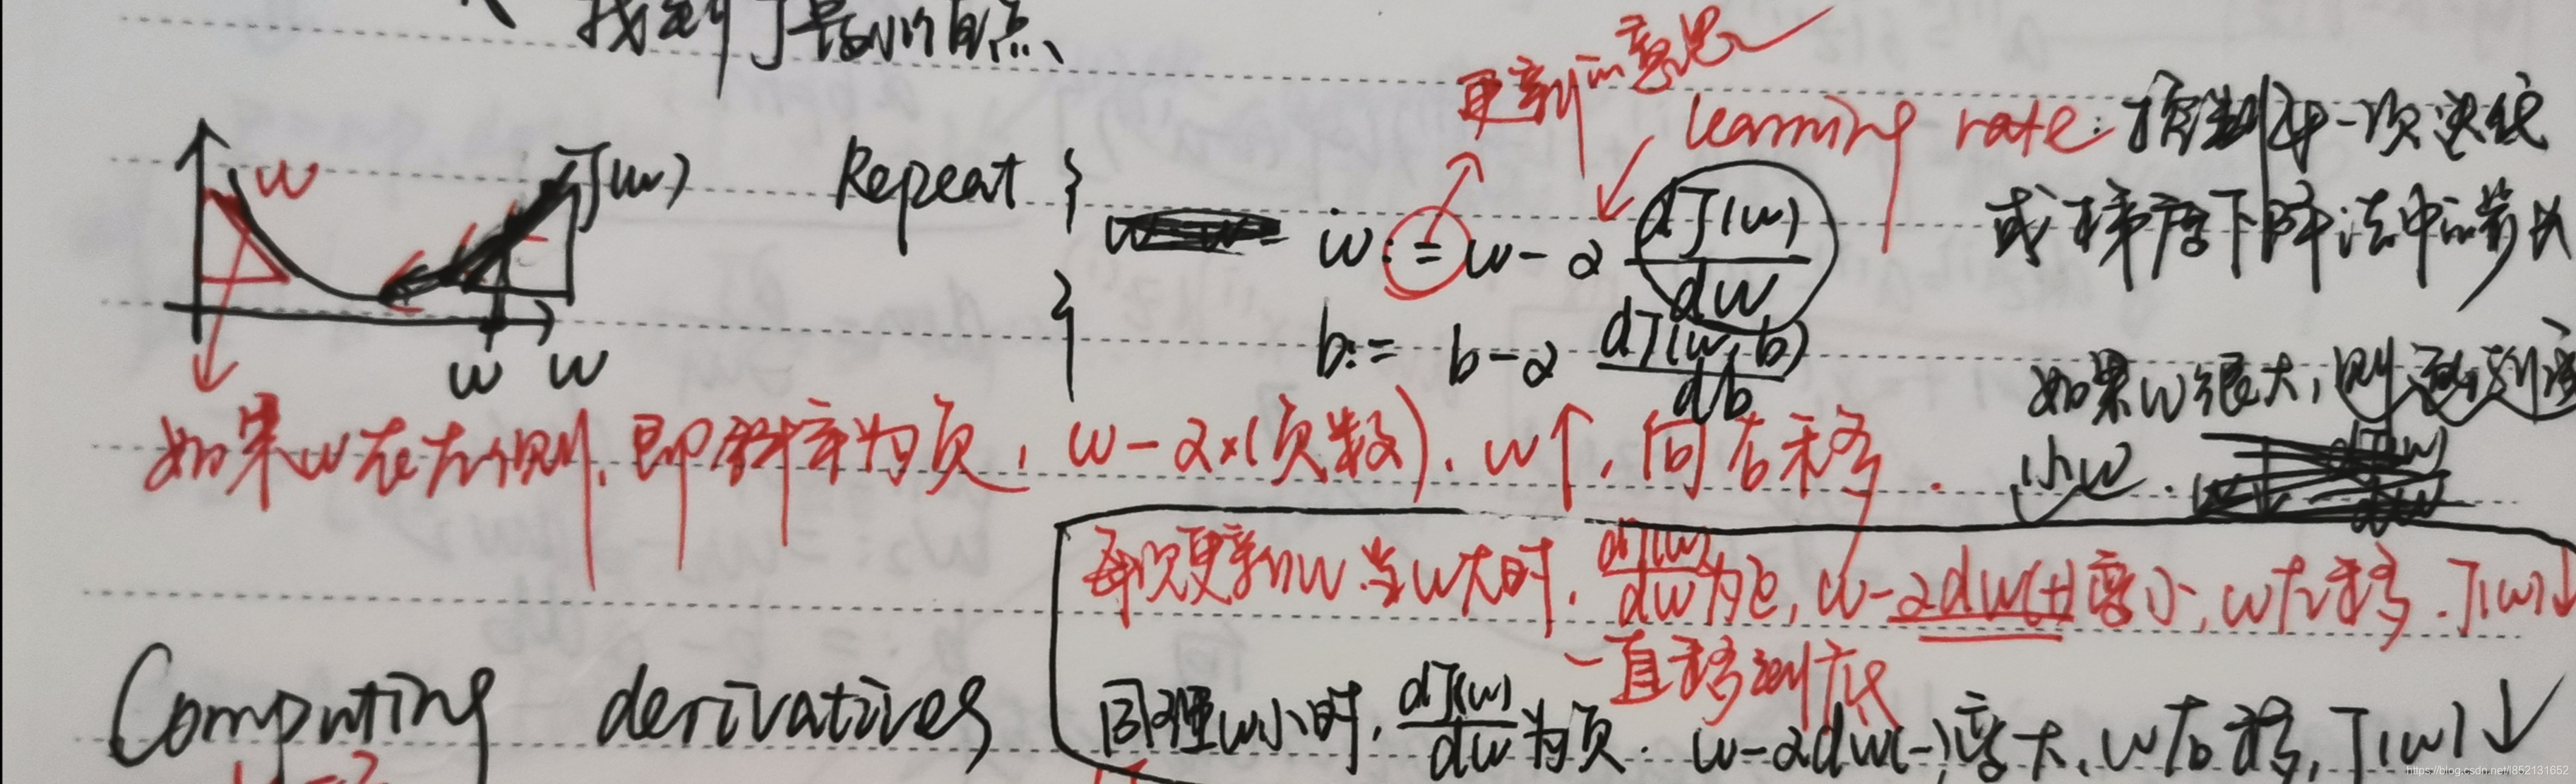 找到了最小值点、
更新的意思
learning rate: 控制每一次迭代
或梯度下降法中的步长
w J(w) Repeat {
w := w - α dJ(w)/dw
b := b - α dJ(w,b)/db
}
w w
如果w很大,则
小w.
如果w在左侧,即斜率为负, w-α×(负数). w↑, 向右移.
每次更新w.当w大时, dJ(w)/dw为正, w-αdw(+)变小, w左移. J(w)↓
一直移到底
Computing derivatives
同理w小时, dJ(w)/dw为负. w-αdw(-)变大, w右移, J(w)↓
https://blog.csdn.net/j852131652